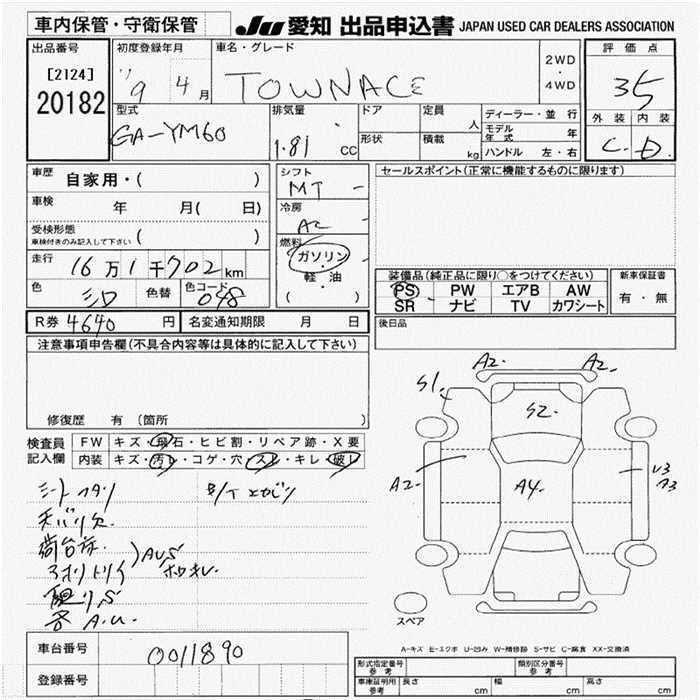 車内保管・守衛保管
JU 愛知 出品申込書 JAPAN USED CAR DEALERS ASSOCIATION
出品番号
[2124]
20182
初度登録年月
'9 4 月
車名・グレード
TOWNACE
2WD
・
4WD
評価点
35
外装 内装
C. D.
型式
GA-YM60
排気量
1.81 cc
ドア
形状
定員 人
積載 kg
ディーラー・並行
モデル年式 年
ハンドル 左・右
車歴 自家用・( )
車検 年 月( 日)
受検形態
車検付きのみ記入して下さい ( )
走行 16万1千702km
色 シロ 色替 色コード 048
R券 4640 円 名変通知期限 月 日
シフト
MT
冷房
AC
燃料
ガソリン
・
軽・油
( )
セールスポイント(正常に機能するものに限ります)
装備品(純正品に限り○をつけてください)
PS PW エアB AW
SR ナビ TV カワシート
新車保証書
有・無
後日品
注意事項申告欄(不具合内容等は具体的に記入して下さい)
修復歴 有 (箇所 )
検査員
記入欄
FW キズ・飛石・ヒビ割・リペア跡・X要
内装 キズ・汚レ・コゲ・穴・スレ・キレ・破レ
A2. A2.
S1.
S2
A2.
A4.
A3
天バリ欠
A.U.
車台番号 0011890
登録番号
スペア
A-キズ E-エクボ U-凹み W-補修跡 S-サビ C-腐食 XX-交換済
形式指定番号
参考
類別区分番号
参考
車庫証明用
参考
長さ cm
幅 cm
高さ cm